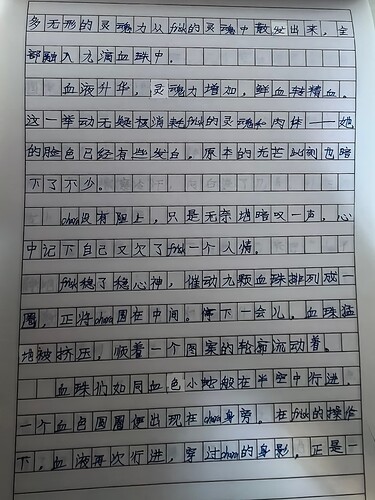 多无形的灵魂力从fish的灵魂中散发出来，全
部融入九滴血珠中。
血液升华，灵魂力增加，鲜血转精血。
这一举动无疑极消耗fish的灵魂和肉体——她
的脸色已经有些发白，原本的光芒此刻也暗
下了不少。
没有阻止，只是无奈地暗叹一声，心
中记下自己又欠了fish一个人情。
fish稳了稳心神，催动九颗血珠排列成一
圈，正将围在中间。停下一会儿，血珠猛
地被挤压，顺着一个图案的轮廓流动着。
血珠们如同血色小蛇般在半空中行进，
一个血色图圈便出现在身旁。在fish的操作
下，血液再次行进，穿过的身影，正是一